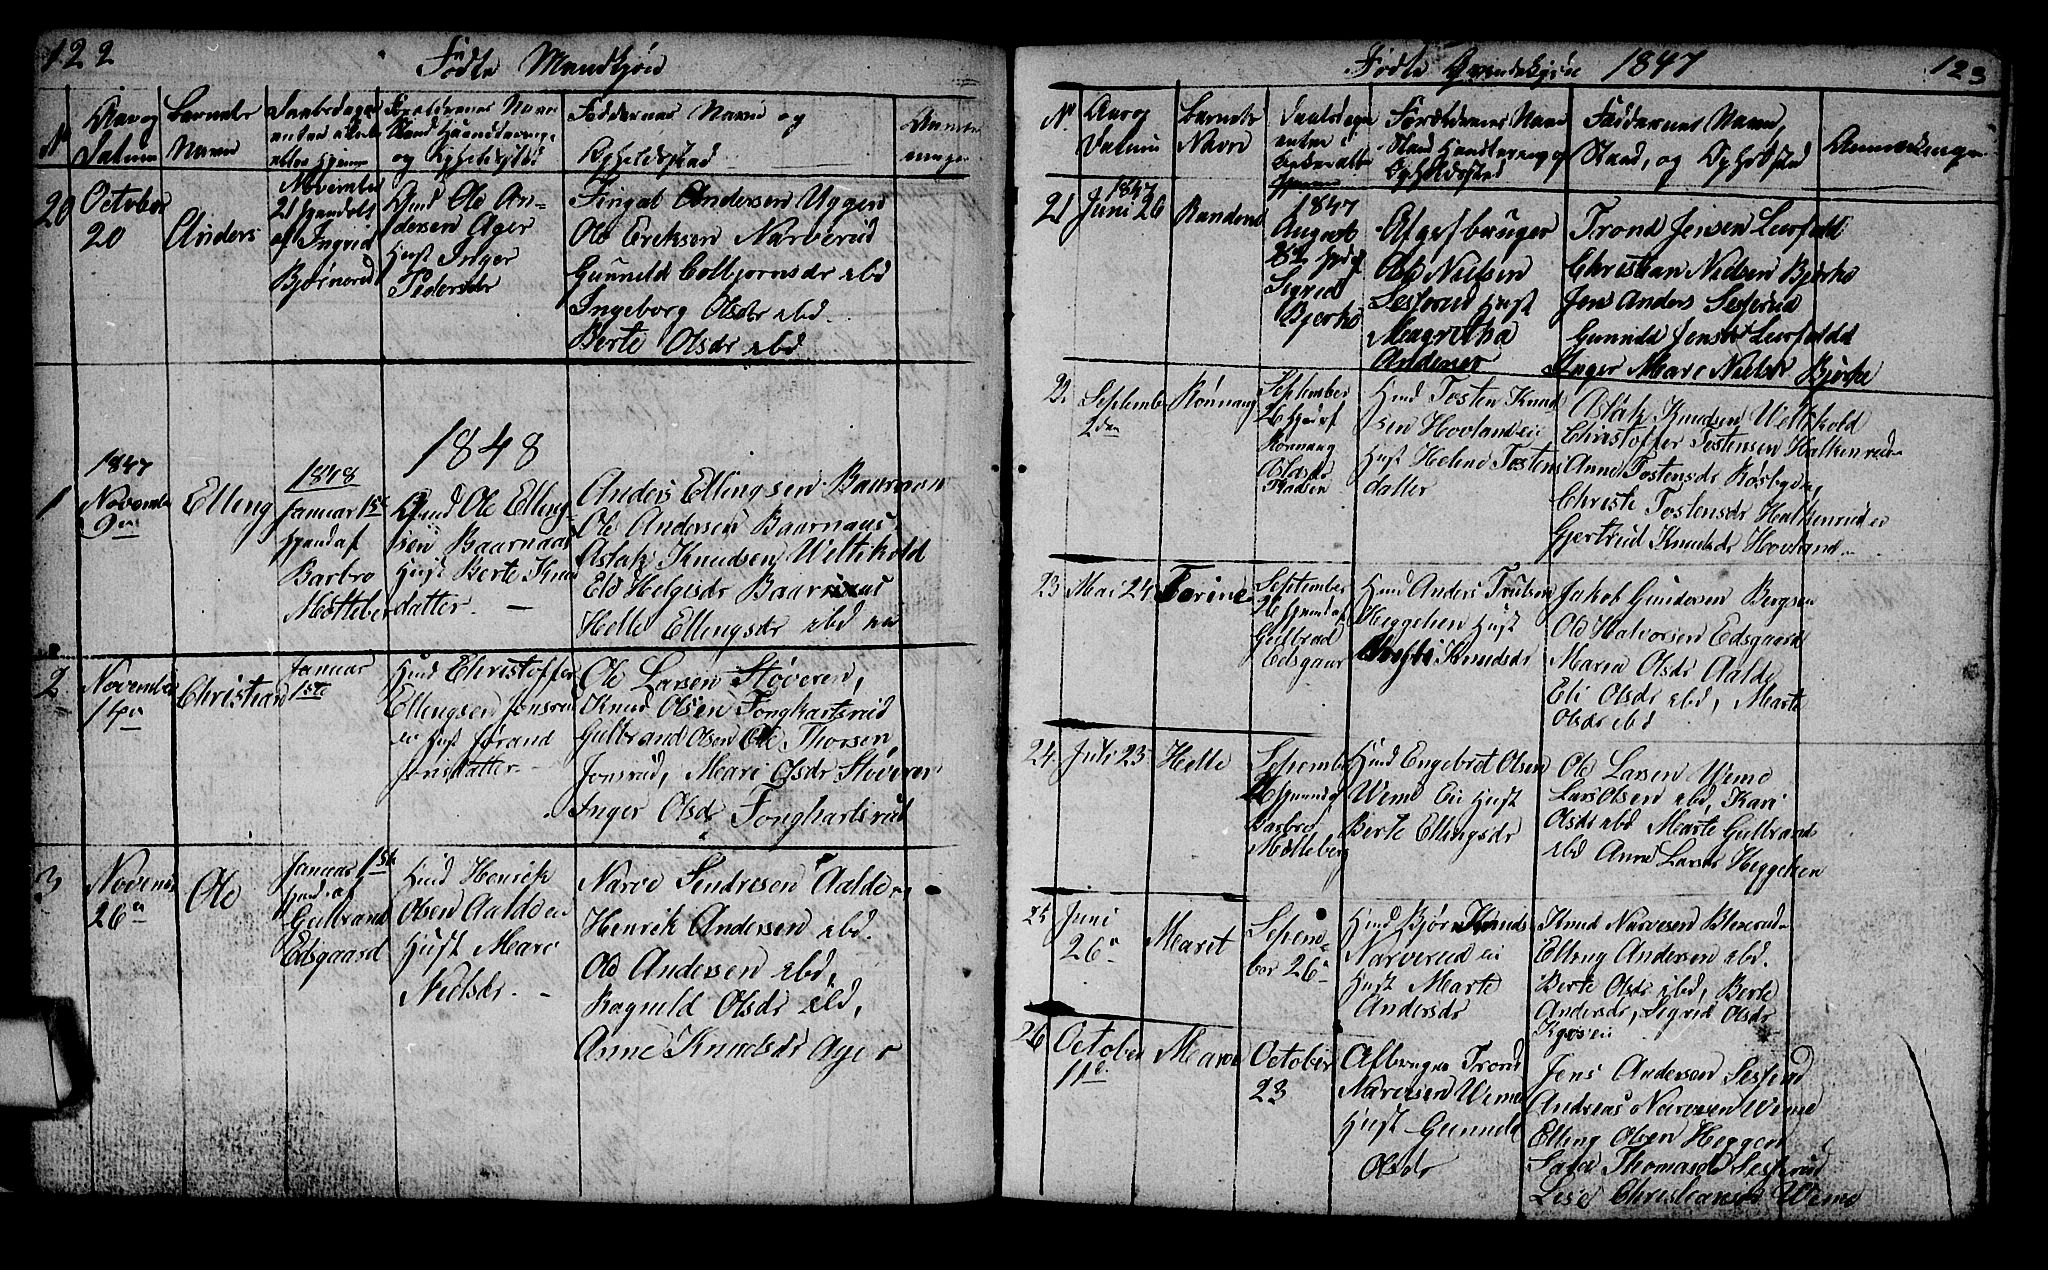 122
Födte Mandkjön
N
Aar og Datum
Barnets Navn
Daabsdagen
Forældrenes Navn
Stand Haandtering
og Opholdssted
Faddernes Navn og
Opholdsstad
Anmærkninger
20
October
20
Anders
November
21 hjemdöbt
af Ingrid
Björnerud
Hmd Ole An-
dersen Ager
Hust Inger
Pedersdr
Fingal Andersen Uggen
Ole Eriksen Narverud
Gunnild Colbjornsdr ibd
Ingeborg Olsdr ibd
Berte Olsdr ibd
1848
1
1847
November
9de
Elling
1848
Januar 1ste
hjemd af
Barbro
Motteberg
Hmd Ole Elling
sen Baarnaas
Hust Berte Knud
datter. —
Anders Ellingsen Baarnaas
Ole Andersen Baarnaas,
Aslak Knudsen Weltikold
Eli Helgesdr Baarnaas
Helle Ellingsdr ibd
2
November
14de
Christian
Januar
1ste
Hmd Christoffer
Ellingsen Jonsrud
ei Hust Jörand
Jonsdatter —
Ole Larsen Stöveren,
Knud Olsen Fonghartsrud
Gulbrand Olsen Ole Thorsen,
Jonsrud, Mari Olsdr Stöveren
Inger Olsdr Fonghartsrud
3
Novem
26de
Ole
Januar 1ste
hmd af
Gulbrand
Edsgaard
Hmd Henrik
Olsen Aalde ei
Hust Mari
Nielsdr. —
Narve Sendresen Aalde
Henrik Andersen ibd.
Ole Andersen ibd,
Ragnild Olsdr ibd,
Anne Knudsdr Ager
Födte Qvindekjön 1847
123
N.
Aar og
Datum
Barnets
Navn
Forældrenes Navn
Stand Handtering og
Opholdssted
Faddernes Navn,
Stand, og Opholdsted
Anmærkninger
21
1847
Juni 26
Randene
1847
August
22 hjd af
Sigrid
Bjerke
Afgifbruger
Ole Nielsen
Sesserud Hust
Magretha
Andersdr
Trond Jensen Leerfald
Christian Nielsen Bjerke
Jens Anders Sesserud
Gunnild Jensdr Leerfald
Inger Mari Nielsdr Bjerke
22
September
2den
Rönnaug
September
26 hjd af
Rönnaug
Olsdr
Hmd Tosten Knud
sen Hovland ei
Hust Helene Tostens
datter
Aslak Knudsen Weltikold
Christoffer Tostensen Halkenrud
Anne Tostensdr Rosbyen,
Christi Tostensdr Halkenrud ei
Gjertrud Knudsdr Hovland
23
Mai 24
Torine
September
26 hjemd af
Gulbrand
Edsgaard
Hmd Anders Trulsen
Heggelien Hust
Knudsdr
Jakob Gundersen Bergsen
Ole Halvorsen Edsgaard
Maria Olsdr Aalde
Eli Olsdr ibd, Marte
Olsdr ibd
24
Juli 23
Helle
September
26 hjemd af
Barbro
Motteberg
Hmd Engebret Olsen
Weme Ei Hust
Berte Ellingsdr
Ole Larsen Weme
Lars Olsen ibd, Kari
Olsdr ibd Marte Gulbrands
ibd Anne Larsdr Heggelien
25
Juni
26de
Maret
Septem-
ber 26de
Hmd Björn Knuds
Narverud ei
Hust Marte
Andersdr
Knud Narvesen Blexerud
Elling Andersen ibd.
Berte Olsdr ibd, Berte
Andersdr, Sigrid Olsdr
26
October
11te
Marie
October
23
Afbruger Trond
Narvesen Weme
Hust Gunnild
Olsdr
Jens Andersen Sesserud
Andreas Narvesen Weme
Elling Olsen Heggen
Sara Thomasdr Sesserud
Lise Christiansdr Weme